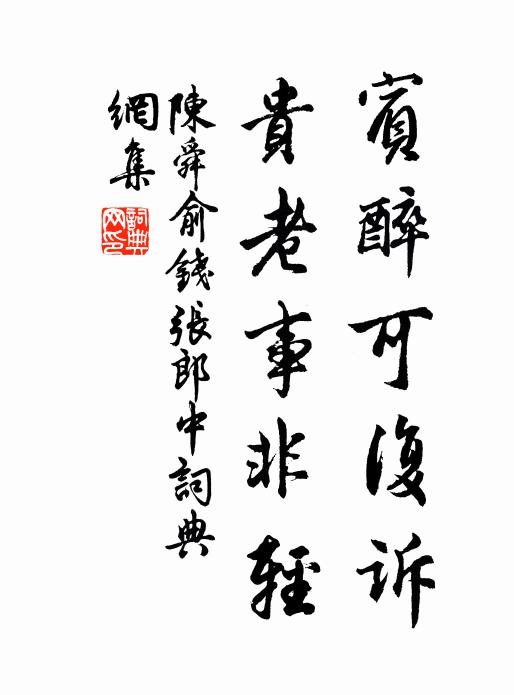 賓醉可復訴
貴老事非輕
陳舜俞錢張郎中詞典
網集
詞典網印